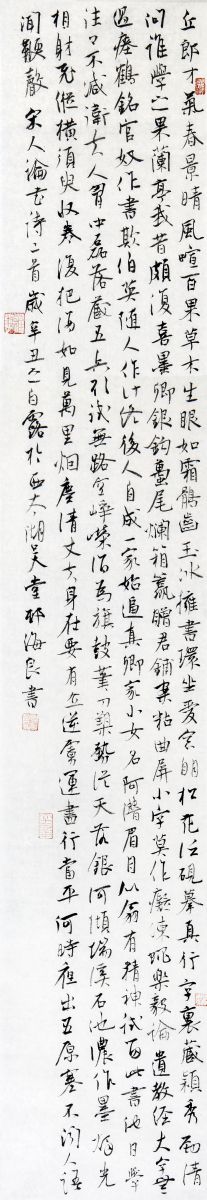 丘郎才氣春景晴風暄百果草木生眼如霜鶻齒玉冰擁書環坐愛窗明松花泛硯摹真行字裏藏穎秀勁清
問誰學之果蘭亭我昔頗復喜墨卿銀鉤蠆尾爛箱籯贈君鋪案粘曲屏小字莫作癡凍蠅樂毅論遺教經大字無
過瘞鶴銘官奴作書欺伯英隨人作計終後人自成一家始逼真卿家小女名阿潛眉目似翁有精神試留此書他日學
往往不減衛夫人胸中磊落藏五兵欲試無路空崢嶸酒為旗鼓筆刀槊勢從天落銀河傾端溪石池濃作墨燭光
相射飛縱橫須臾收卷復把酒如見萬里烟塵清丈夫身在要有立逆虜運盡行當平何時夜出五原塞不聞人語
聞鞭聲 宋人論書詩二首歲辛丑之白露於西太湖吳堂 海良書